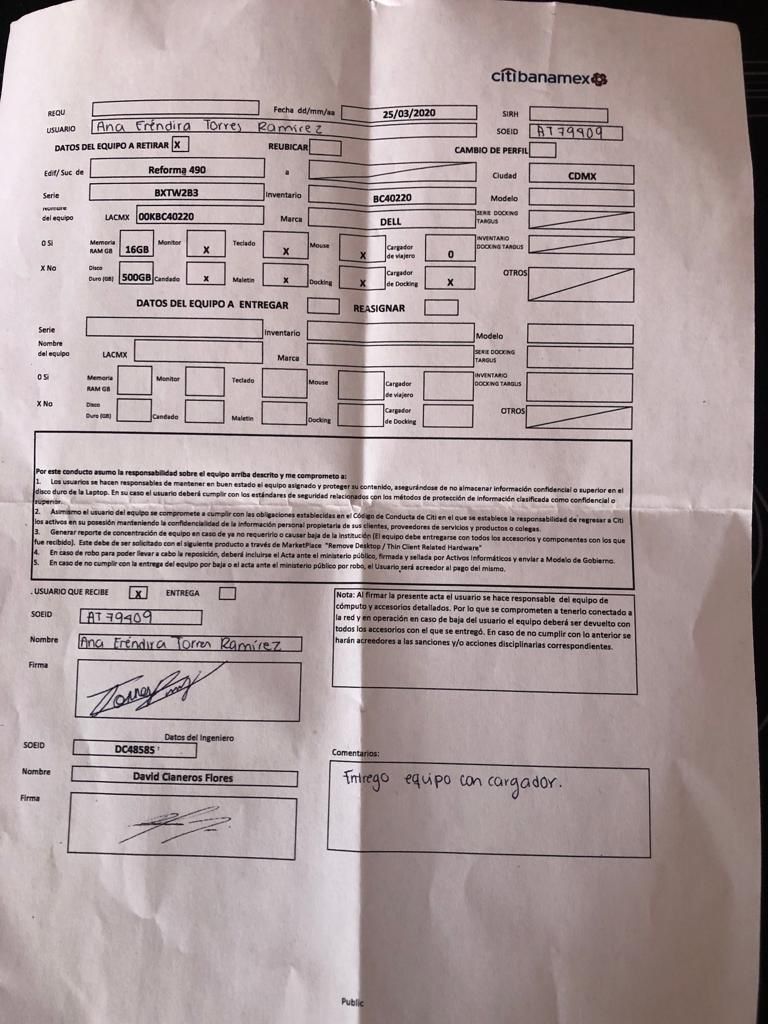 citibanamex
REQU Fecha dd/mm/aa 25/03/2020 SIRH
USUARIO Ana Eréndira Torres Ramírez SOEID AT79409
DATOS DEL EQUIPO A RETIRAR X REUBICAR CAMBIO DE PERFIL
Edif/ Suc de Reforma 490 a Ciudad CDMX
Serie BXTW2B3 Inventario BC40220 Modelo
Nombre del equipo LACMX 00KBC40220 Marca DELL SERIE DOCKING TARGUS
O Si Memoria RAM GB 16GB Monitor X Teclado X Mouse X Cargador de viajero O INVENTARIO DOCKING TARGUS
X No Disco Duro (GB) 500GB Candado X Maletin X Docking X Cargador de Docking X OTROS
DATOS DEL EQUIPO A ENTREGAR REASIGNAR
Serie Inventario Modelo
Nombre del equipo LACMX Marca SERIE DOCKING TARGUS
O Si Memoria RAM GB Monitor Teclado Mouse Cargador de viajero INVENTARIO DOCKING TARGUS
X No Disco Duro (GB) Candado Maletin Docking Cargador de Docking OTROS
Por este conducto asumo la responsabilidad sobre el equipo arriba descrito y me comprometo a:
1. Los usuarios se hacen responsables de mantener en buen estado el equipo asignado y proteger su contenido, asegurándose de no almacenar información confidencial o superior en el
disco duro de la Laptop. En su caso el usuario deberá cumplir con los estándares de seguridad relacionados con los métodos de protección de información clasificada como confidencial o
superior.
2. Asimismo el usuario del equipo se compromete a cumplir con las obligaciones establecidas en el Código de Conducta de Citi en el que se establece la responsabilidad de regresar a Citi
los activos en su posesión manteniendo la confidencialidad de la información personal propietaria de sus clientes, proveedores de servicios y productos o colegas.
3. Generar reporte de concentración de equipo en caso de ya no requerirlo o causar baja de la institución (El equipo debe entregarse con todos los accesorios y componentes con los que
fue recibido). Este debe de ser solicitado con el siguiente producto a través de MarketPlace "Remove Desktop / Thin Client Related Hardware"
4. En caso de robo para poder llevar a cabo la reposición, deberá incluirse el Acta ante el ministerio público, firmada y sellada por Activos Informáticos y enviar a Modelo de Gobierno.
5. En caso de no cumplir con la entrega del equipo por baja o el acta ante el ministerio público por robo, el Usuario será acreedor al pago del mismo.
. USUARIO QUE RECIBE X ENTREGA
SOEID AT79409
Nombre Ana Eréndira Torres Ramírez
Firma Torres
Nota: Al firmar la presente acta el usuario se hace responsable del equipo de
cómputo y accesorios detallados. Por lo que se comprometen a tenerlo conectado a
la red y en operación en caso de baja del usuario el equipo deberá ser devuelto con
todos los accesorios con el que se entregó. En caso de no cumplir con lo anterior se
harán acreedores a las sanciones y/o acciones disciplinarias correspondientes.
Datos del Ingeniero
SOEID DC48585
Nombre David Cianeros Flores
Firma
Comentarios:
Entrego equipo con cargador.
Public